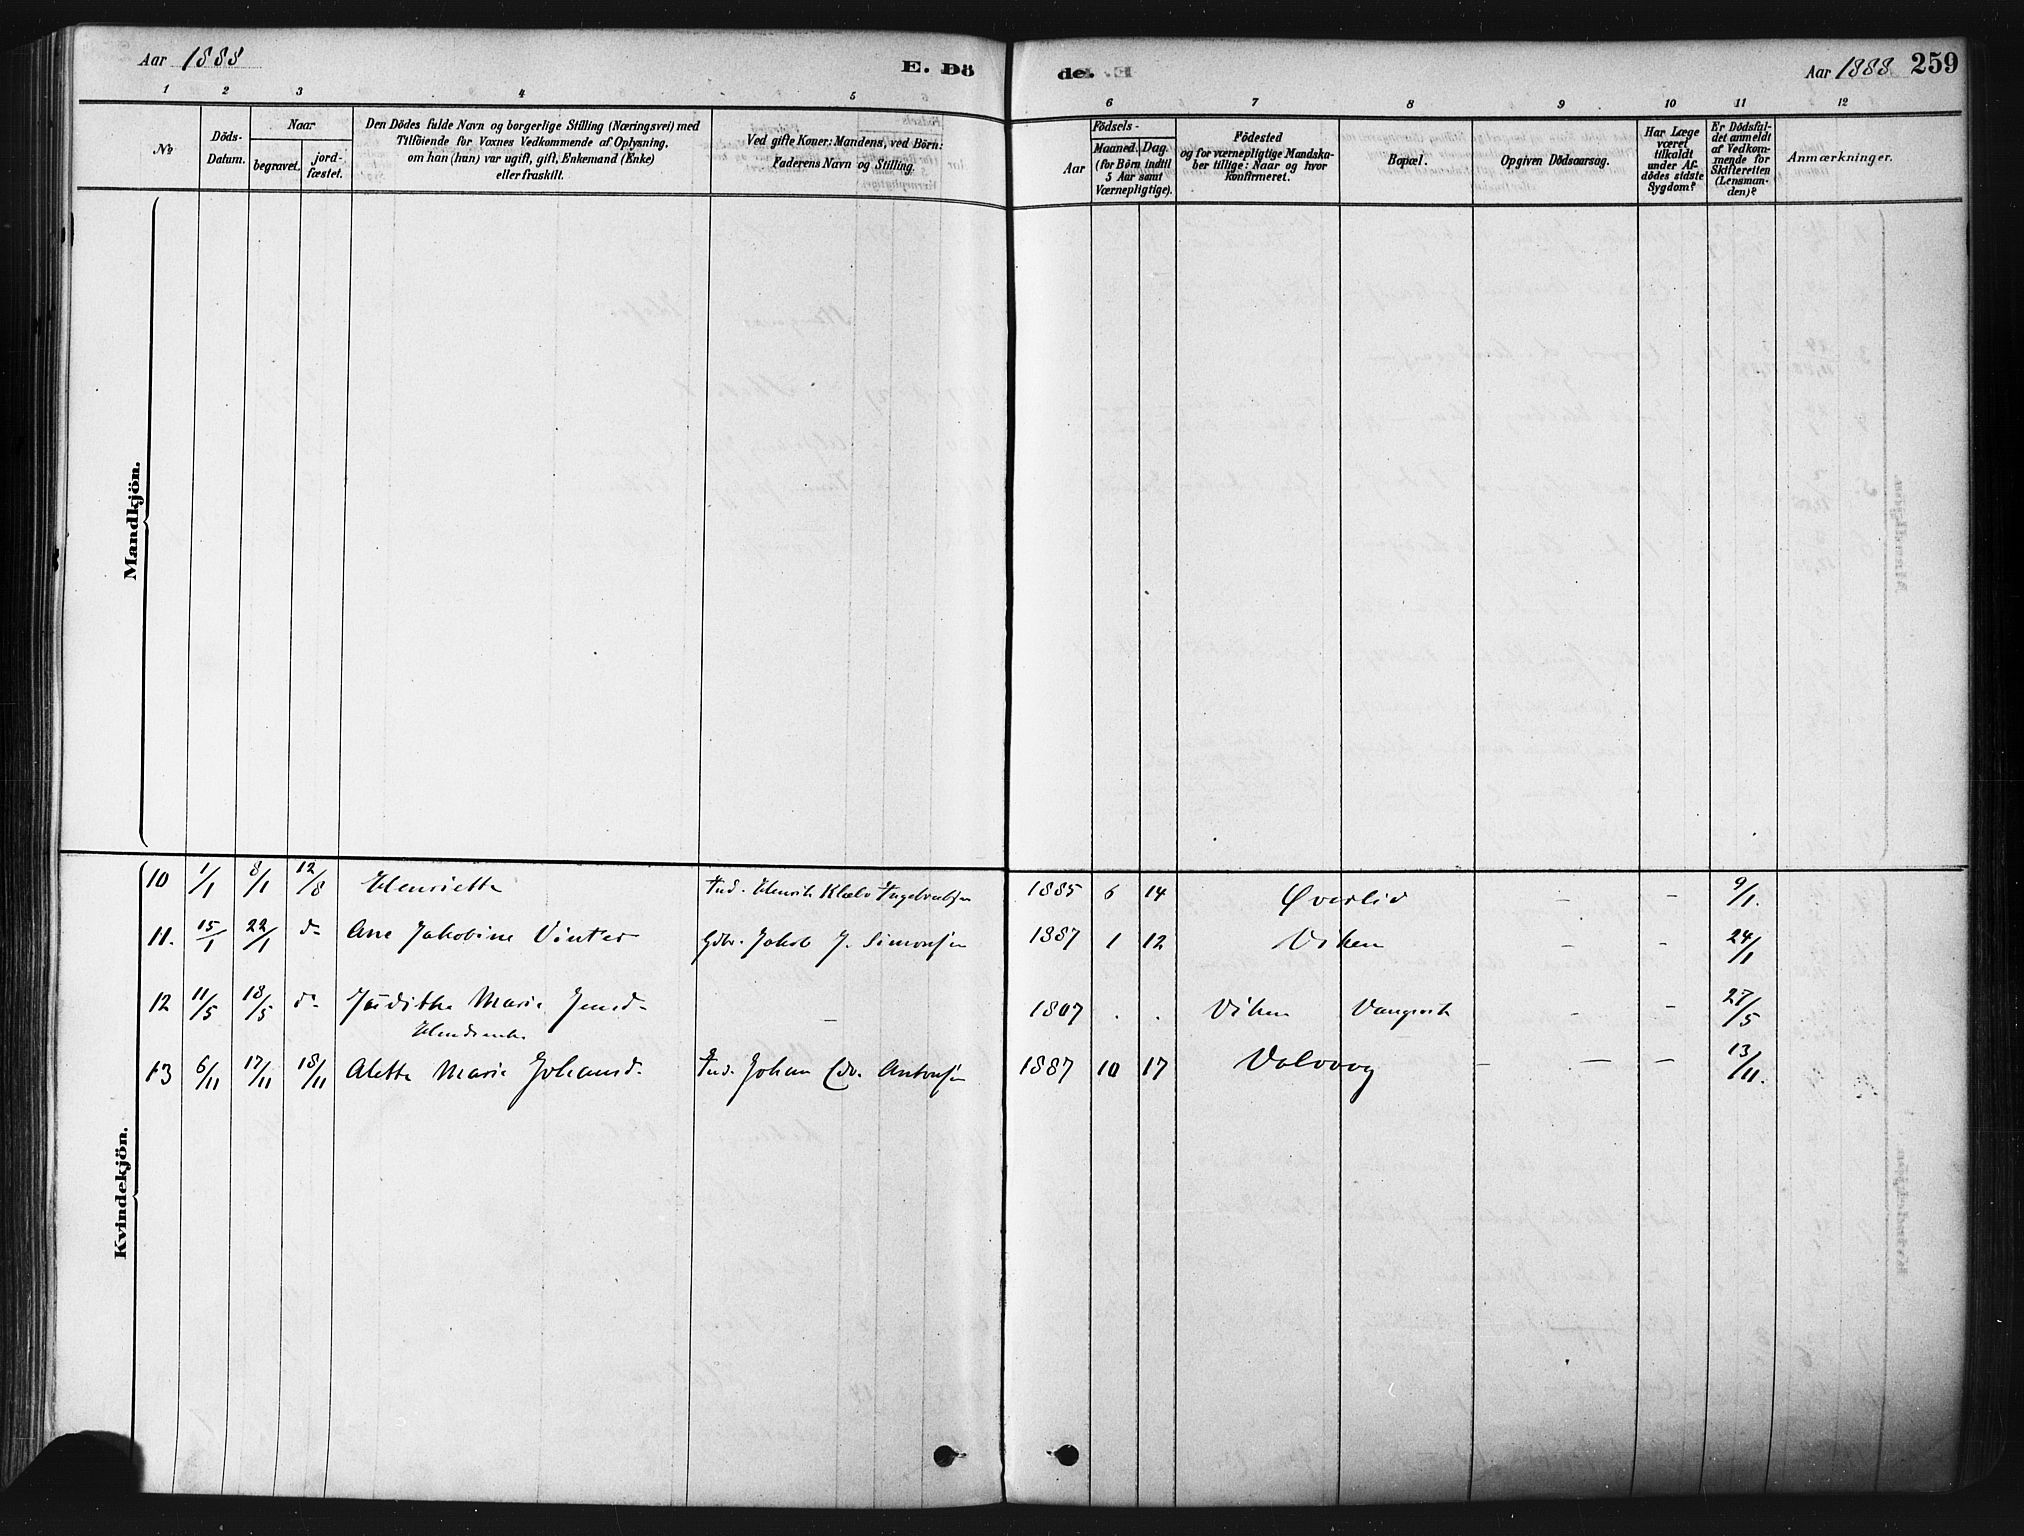 Aar 1888
E. Dö
de.
Aar 1888 259
1 2 3 4 5 6 7 8 9 10 11 12
№
Döds-
Datum.
Naar
begravet.
jord-
fæstet.
Den Dödes fulde Navn og borgerlige Stilling (Næringsvei) med
Tilföiende for Voxnes Vedkommende af Oplysning,
om han (hun) var ugift, gift, Enkemand (Enke)
eller fraskilt.
Ved gifte Koner: Mandens, ved Börn:
Faderens Navn og Stilling.
Födsels-
Aar
Maaned. Dag.
(for Börn indtil
5 Aar samt
Værnepligtige).
Födested
og for værnepligtige Mandska-
ber tillige: Naar og hvor
konfirmeret.
Bopæl.
Opgiven Dödsaarsag.
Har Læge
været
tilkaldt
under Af-
dödes sidste
Sygdom?
Er Dödsfal-
det anmeldt
af Vedkom-
mende for
Skifteretten
(Lensman-
den)?
Anmærkninger.
Mandkjön.
Kvindekjön.
10 1/1 8/1 12/8 Henriette Ind. Henrik Klæbo Ingebrigtsen 1885 6 14 Øverlid - - 9/1.
11. 15/1 22/1 do Ane Jakobine Vinter Gdbr. Jakob J. Simonsen 1887 1 12 Viken - - 24/1
12 11/5 18/5 do Judithe Marie Jensd. - 1807 . . Viken Vangsvik - - 27/5
13 6/11 17/11 18/11 Alette Marie Johansd. Ind. Johan Edv. Antonsen 1887 10 17 Valvaag - - - 13/11.